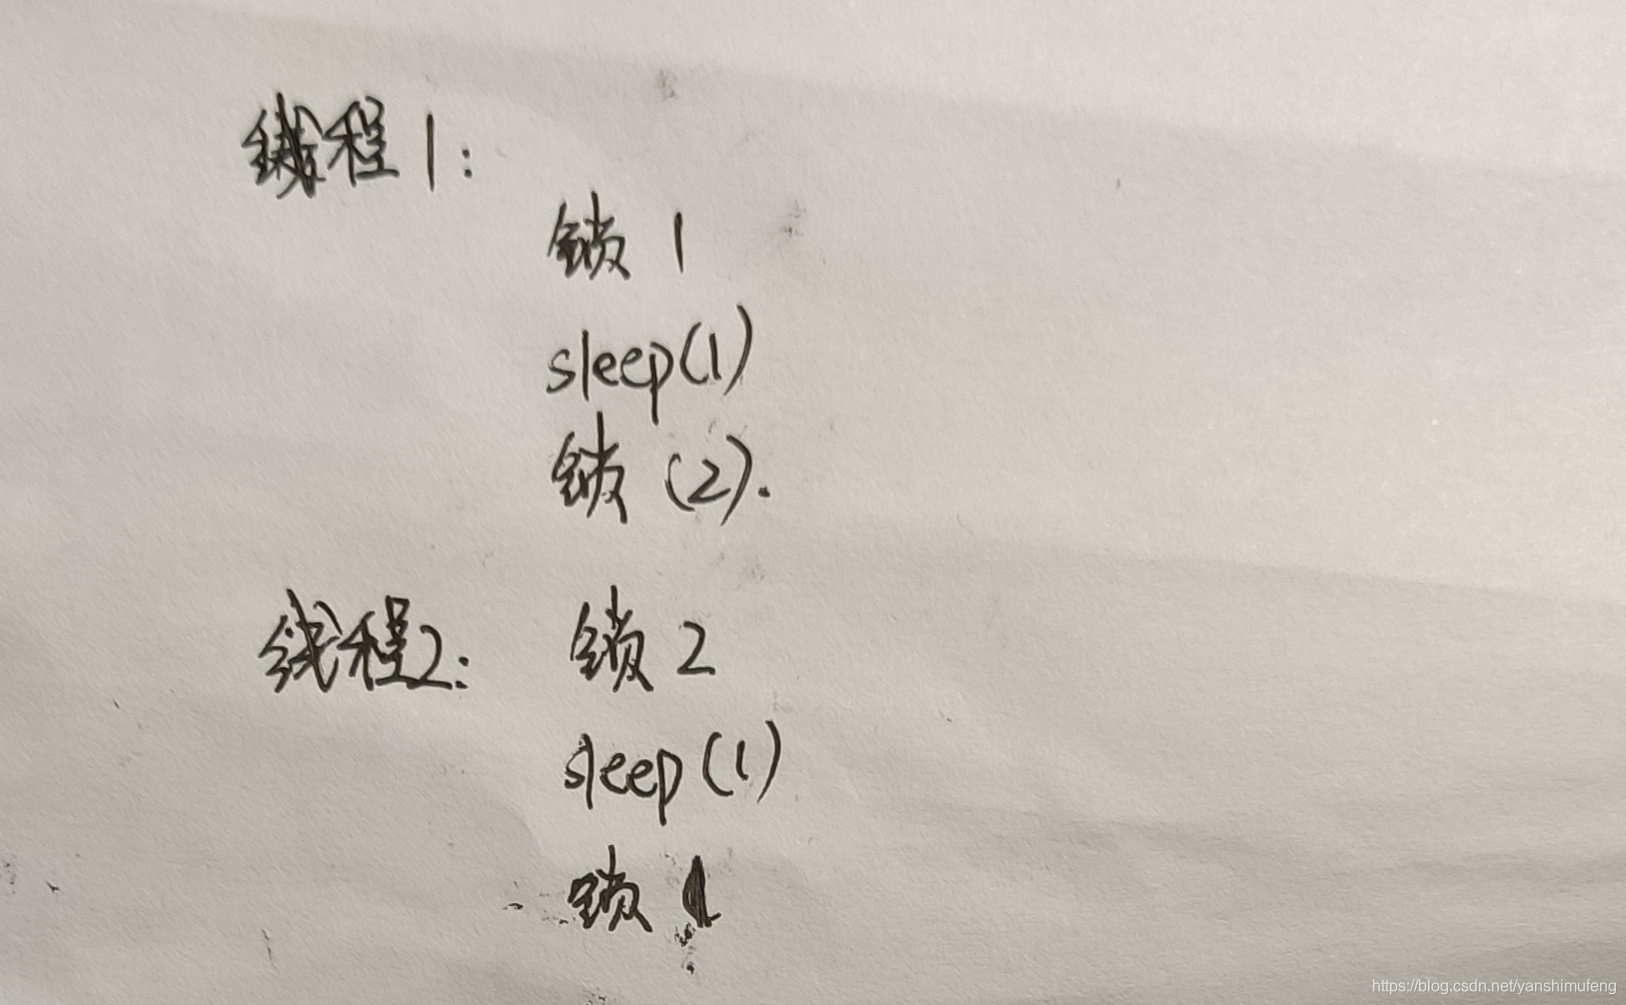 线程1:
锁 1
sleep(1)
锁 (2).
线程2: 锁 2
sleep(1)
锁 1
https://blog.csdn.net/yanshimufeng